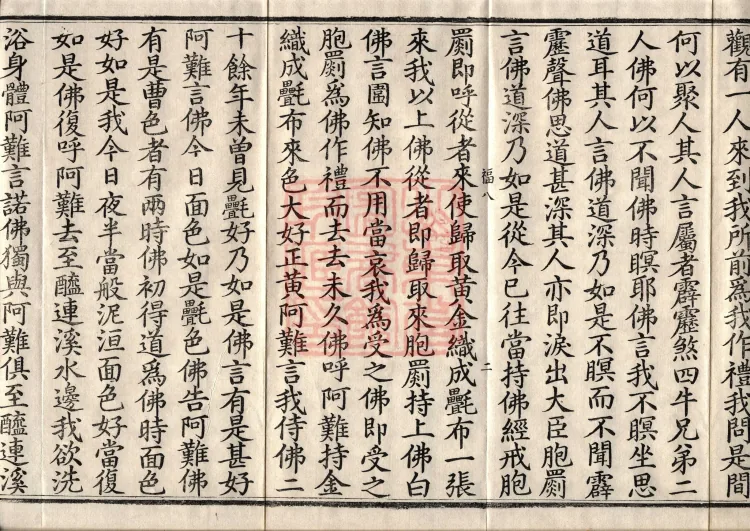 觀有一人來到我所前為我作禮我問是間
何以聚人其人言屬者霹靂煞四牛兄弟二
人佛何以不聞佛時瞑耶佛言我不瞑坐思
道耳其人言佛道深乃如是不瞑而不聞霹
靂聲佛思道甚深其人亦即淚出大臣胞罽
言佛道深乃如是從今已往當持佛經戒胞
福八
二
罽即呼從者來使歸取黃金織成㲲布一張
來我以上佛從者即歸取來胞罽持上佛白
佛言圖知佛不用當哀我為受之佛即受之
胞罽為佛作禮而去去未久佛呼阿難持金
織成㲲布來色大好正黃阿難言我侍佛二
十餘年未曾見㲲好乃如是佛言有是甚好
阿難言佛今日面色如是㲲色佛告阿難佛
有是曹色者有兩時佛初得道為佛時面色
好如是我今日夜半當般泥洹面色好當復
如是佛復呼阿難去至醯連溪水邊我欲洗
浴身體阿難言諾佛獨與阿難俱至醯連溪